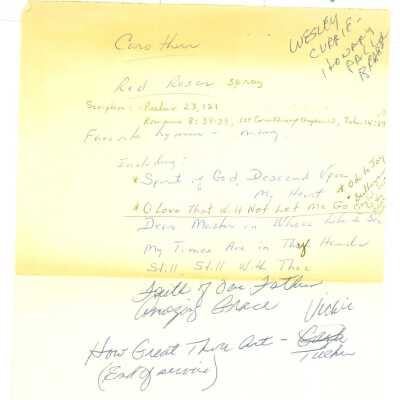 WESLEY
CURRIE -
HONORARY
PALL
BEARER
Carothers
Red Roses spray
Scripture: Psalms 23, 121
Romans 8: 34-39, 1st Corinthians Chapter 13, John 14:
Favorite hymns - many
Including:
* Spirit of God, Descend Upon
My Heart
* Ode to Joy
* O Love That Will Not Let Me Go
Dear Master in Whose Life I See
My Times Are in Thy Hands
Still, Still With Thee
Faith of Our Fathers
Amazing Grace
How Great Thou Art - Vickie
Tucker
(End of service)